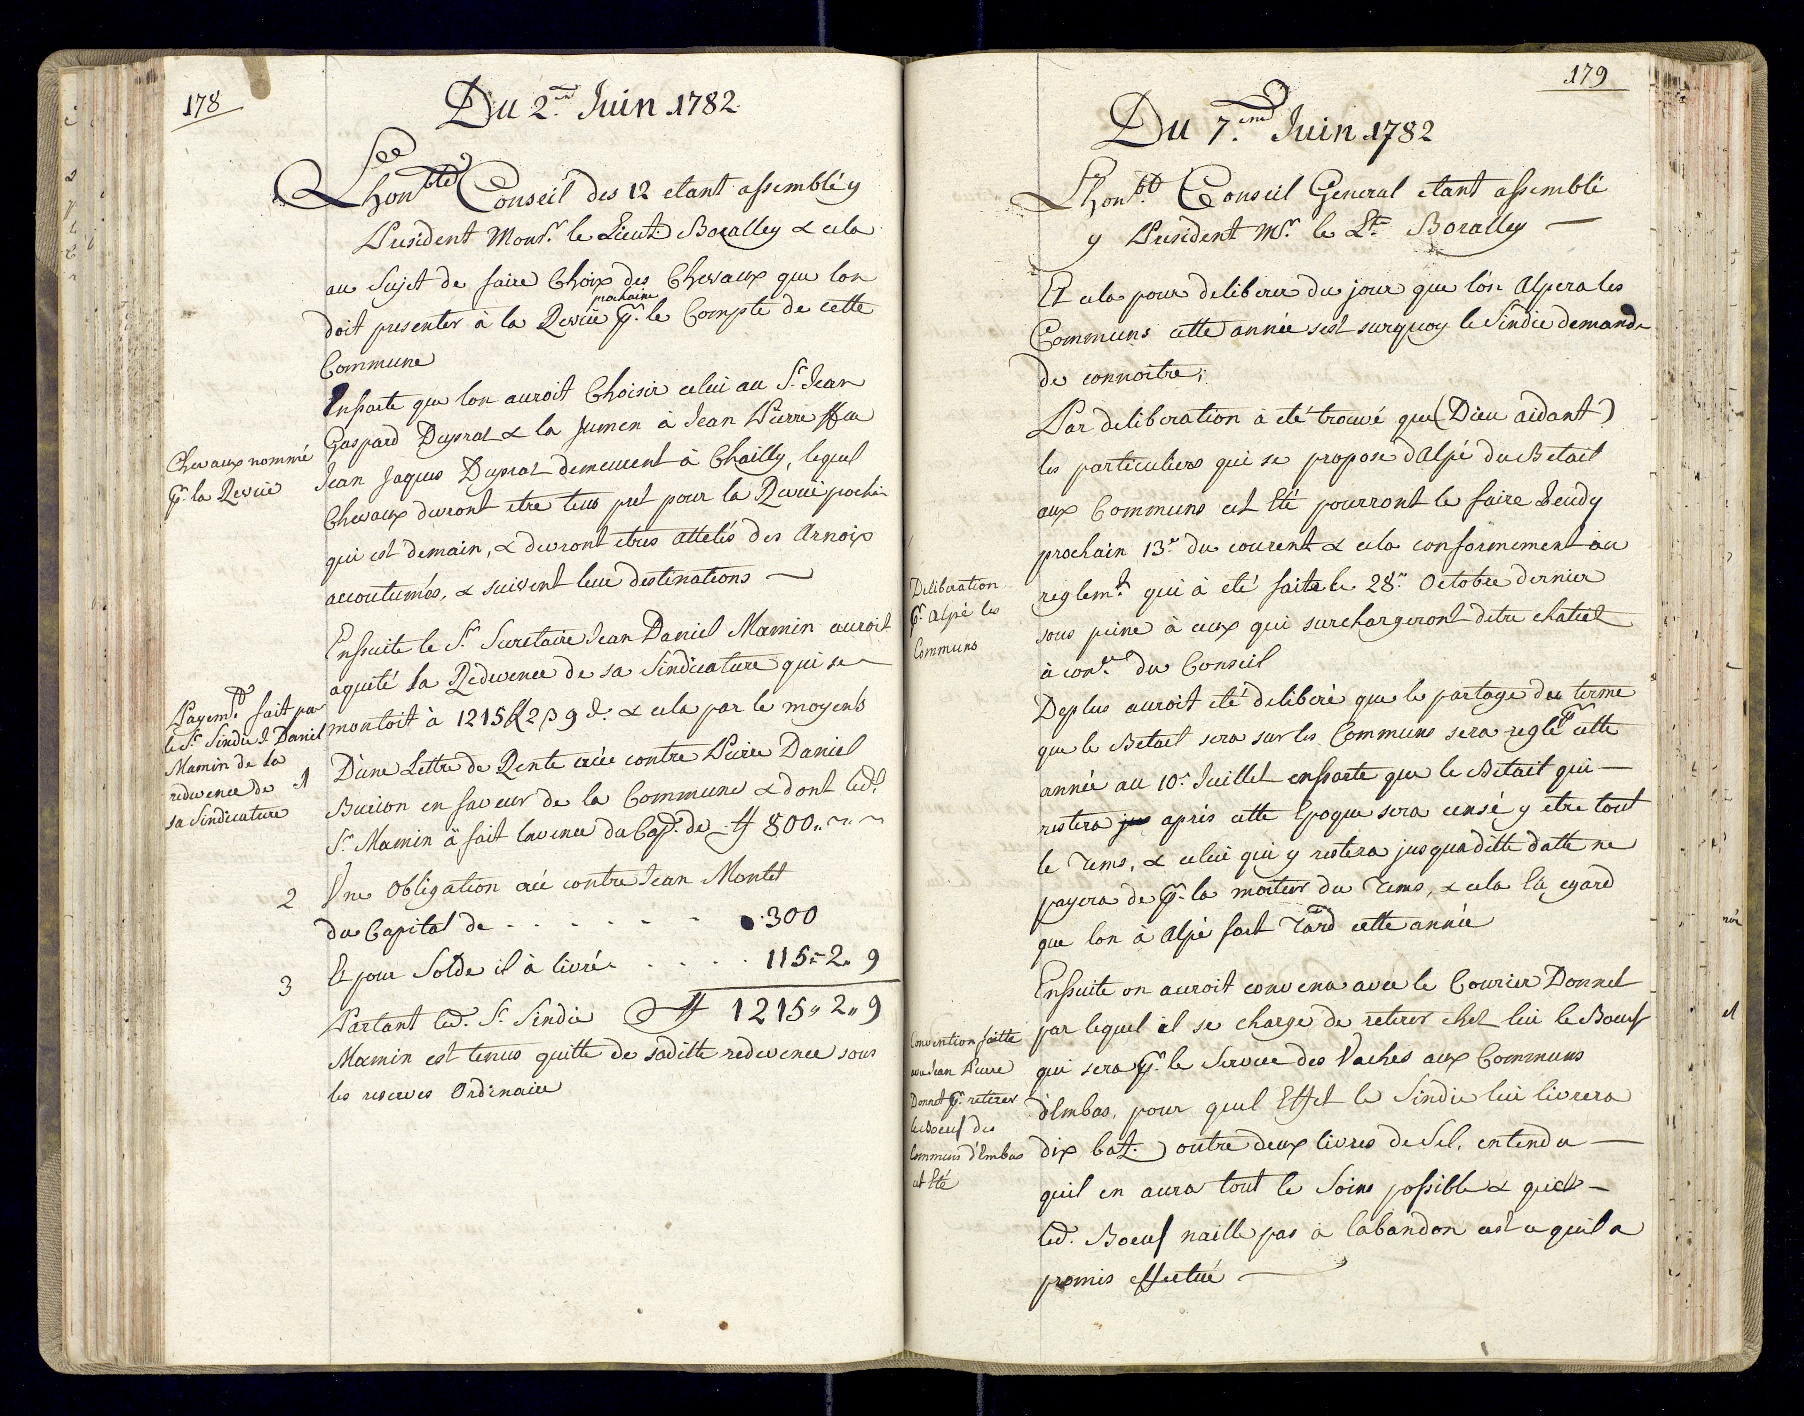 178
Du 2.me Juin 1782
Lhonble Conseil des 12 etant assemblé y
President Monsr. le Lieut Boralley & cela
au Sujet de faire Choix des Chevaux que lon
doit presenter à la Revüe prochaine pr. le Compte de cette
Commune
Ensorte que lon auroit Choisir celui au Sr. Jean
Gaspard Dupraz & la Jumen à Jean Pierre ffeu
Jean Jaques Dupraz demeurent à Chailly, lequel
Chevaux devront etre tous pret pour la Revüe prochin
qui est demain, & devront etres attelés des Arnoix
accoutumés, & suivent leur destinations —
Chevaux nommé
pr. la Revüe
Ensuite le Sr. Secretaire Jean Daniel Mamin auroit
aquité la Redevence de sa Sindicature qui se
montoit à 1215 L 2 ß 9 d. & cela par le moyens
Payemt. fait par
le Sr. Sindic J. Daniel
Mamin de la
redevence de
sa Sindicature
1 D'une Lettre de Rente créé contre Pierre Daniel
Burion en faveur de la Commune & dont led.
Sr. Mamin à fait lavence du Cap. de ₶ 800 „ ~ „ ~
2 Une Obligation crée contre Jean Montet
du Capital de . . . . . 300
3 Et pour Solde il à livré . . . . 115 „ 2 „ 9
Partant led. Sr. Sindic ₶ 1215 „ 2 „ 9
Mamin est tenus quitte de saditte redevence sous
les reserves Ordinaire
179
Du 7.eme Juin 1782
Lhonble. Conseil General etant assemblé
y President Mr. le Lt. Boralley —
Et cela pour deliberer du jour que lon Alpera les
Communs cette année sest surquoy le Sindic demande
de connoitre;
Par deliberation à eté trouvé que (Dieu aidant)
les particuliers qui se propose d'Alpé du Betait
aux Communs cet Eté pourront le faire Jeudy
prochain 13e du courent & cela conformement au
reglemt. qui à eté faite le 28e Octobre dernier
sous peine à ceux qui surchargeront detre chatiet
à conce. du Conseil
Deliberation
pr. Alpé les
Communs
Deplus auroit eté deliberé que le partage du terme
que le Betail sera sur les Communs sera reglé pr cette
année au 10e Juillet ensorte que le Betait qui —
restera jus après cette Epoque sera censé y etre tout
le Tems, & celui qui y restera jusquaditte datte ne
payera de pr. la moitier du Tems, & cela Eü egard
que lon à Alpé fort Tard cette année
Ensuite on auroit convenu avec le Courier Donnet
par lequel il se charge de retirer chet lui le Boeuf
qui sera pr. le Service des Vaches aux Communs
d'Embas, pour quel Effet le Sindic lui livrera
dix batz. outre deux livres de Sel, entendu —
quil en aura tout le Soins possible & que —
led. Boeuf naille pas à labandon cest a quil a
promis effectué —
Convention faitte
avec Jean Pierre
Donnet pr. retirer
le Boeuf des
Communs d'Embas
cet Eté